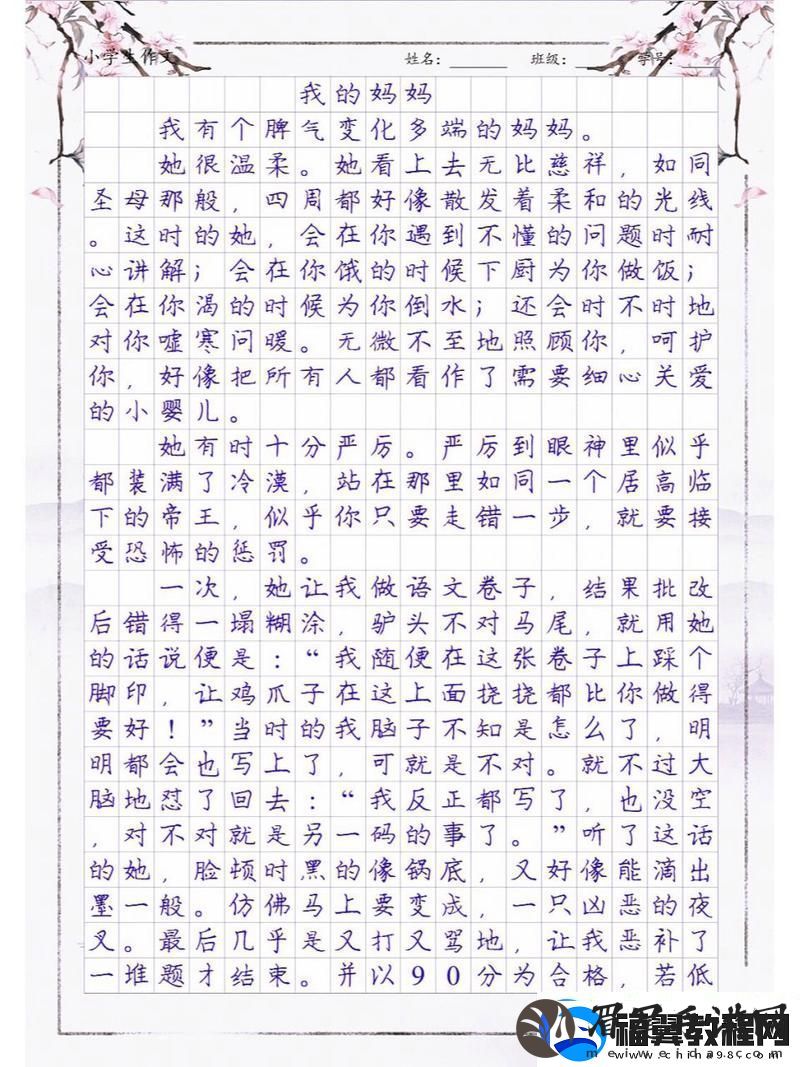 小学生作文
姓名：
班级：
学号：
我的妈妈
我有个脾气变化多端的妈妈。
她很温柔。她看上去无比慈祥，如同
圣母那般，四周都好像散发着柔和的光线
。这时的她，会在你遇到不懂的问题时耐
心讲解；会在你饿的时候下厨为你做饭；
会在你渴的时候为你倒水；还会时不时地
对你嘘寒问暖。无微不至地照顾你，呵护
你，好像把所有人都看作了需要细心关爱
的小婴儿。
她有时十分严厉。严厉到眼神里似乎
都装满了冷漠，站在那里如同一个居高临
下的帝王，似乎你只要走错一步，就要接
受恐怖的惩罚。
一次，她让我做语文卷子，结果批改
后错得一塌糊涂，驴头不对马尾，就用她
的话说便是：“我随便在这张卷子上踩个
脚印，让鸡爪子在这上面挠挠都比你做得
要好！”当时的我脑子不知是怎么了，明
明都会也写上了，可就是不对。就不过大
脑地怼了回去：“我反正都写了，也没空
，对不对就是另一码的事了。”听了这话
的她，脸顿时黑的像锅底，又好像能滴出
墨一般。仿佛马上要变成，一只凶恶的夜
叉。最后几乎是又打又骂地，让我恶补了
一堆题才结束。并以90分为合格，若低
福翼教程网
www.china98.com